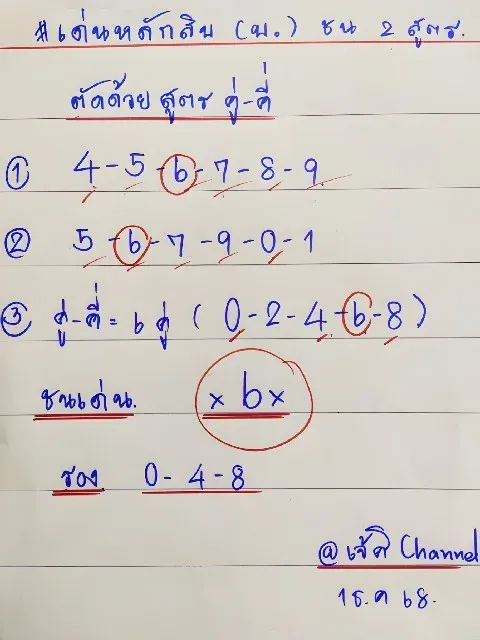 #เด่นหลักสิบ (บ.) ชน 2 สูตร.
ตัดด้วย สูตร คู่-คี่
① 4-5-6-7-8-9
② 5-6-7-9-0-1
③ คู่-คี่ = 6 คู่ (0-2-4-6-8)
ชนเด่น. ×6×
รอง 0-4-8
@เจ๊ติ Channel
1 ธ.ค 68.